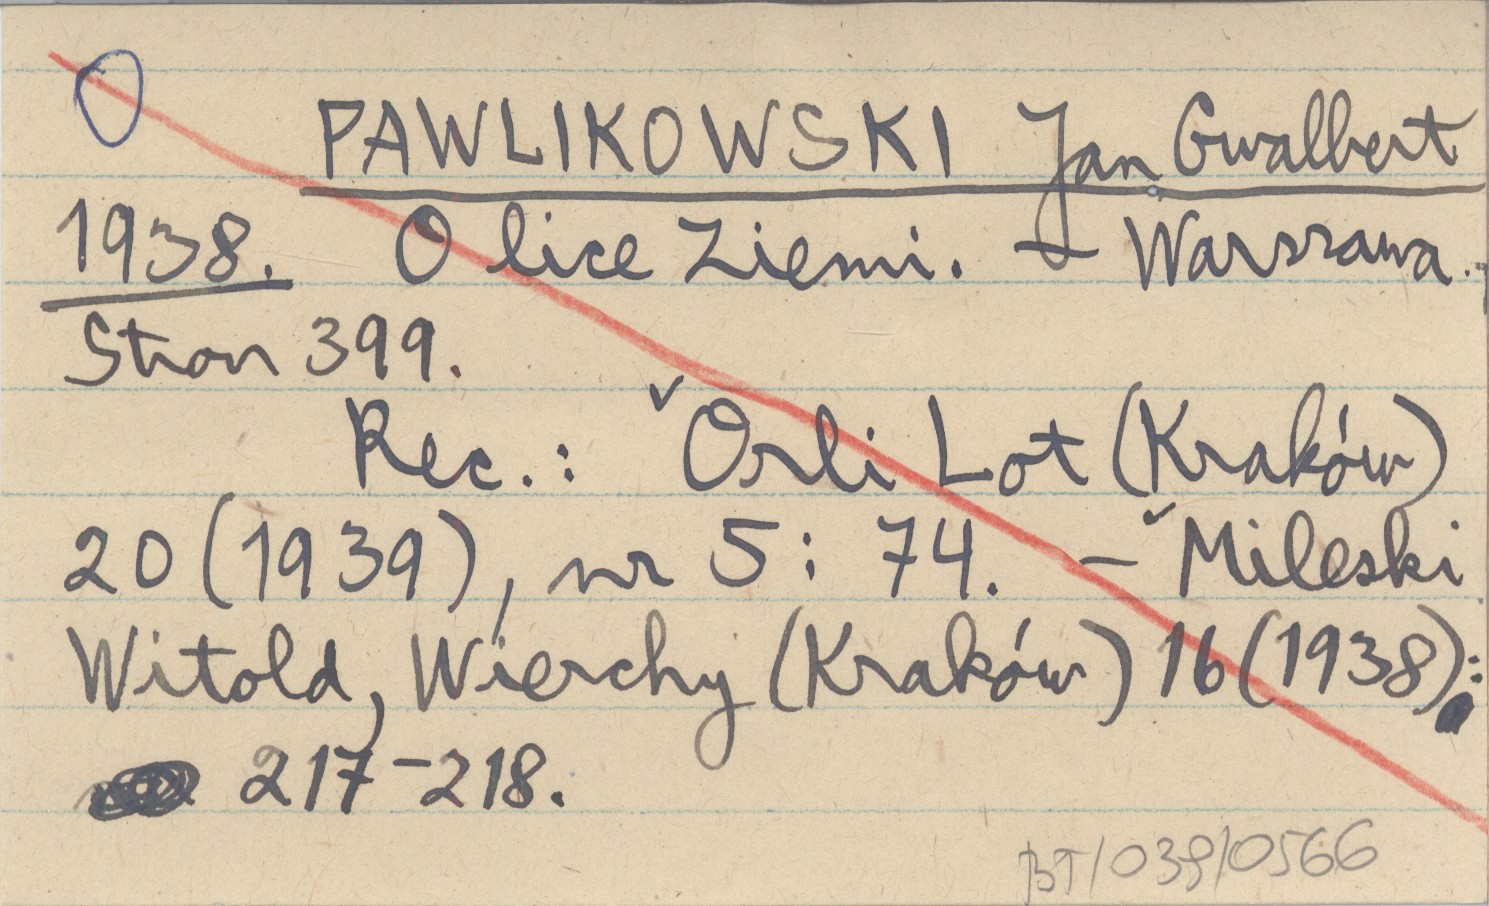 PAWLIKOWSKI Jan Gwalbert
1938. O lice Ziemi. – Warszawa.
Stron 399.
Rec.: ˅Orli Lot (Kraków)
20 (1939), nr 5: 74. – ˅Mileski
Witold, Wierchy (Kraków) 16 (1938):
217–218.
BT/038/0566